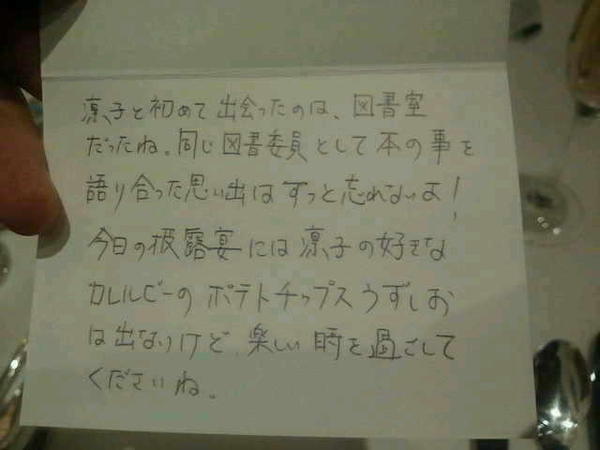 凛子と初めて出会ったのは、図書室
だったね。同じ図書委員として本の事を
語り合った思い出はずっと忘れないよ!
今日の披露宴には凛子の好きな
カルビーのポテトチップスうすしお
は出ないけど、楽しい時を過ごして
くださいね。